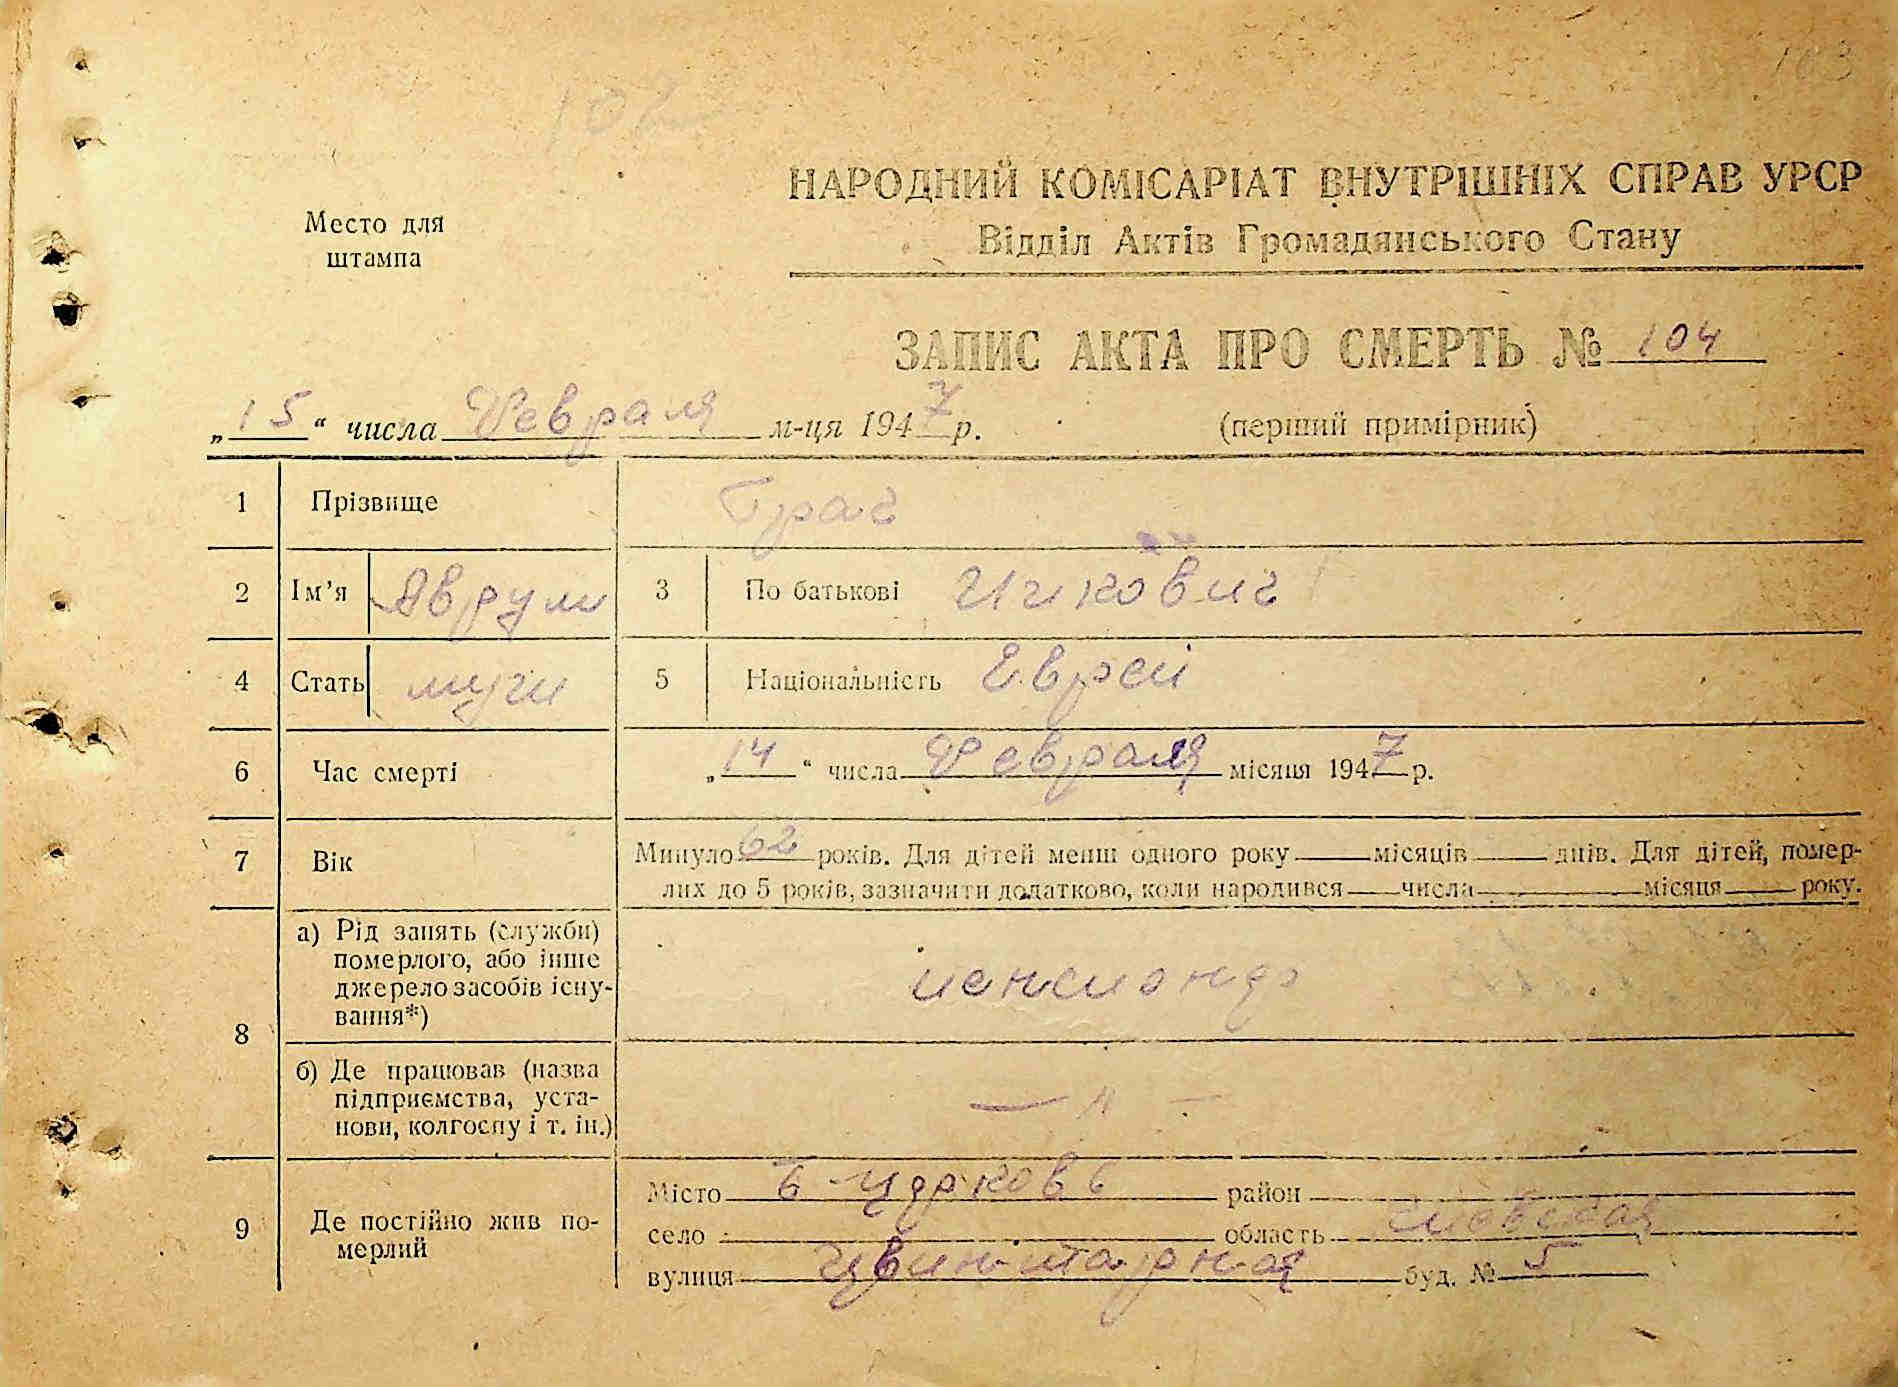 103
НАРОДНИЙ КОМІСАРІАТ ВНУТРІШНІХ СПРАВ УРСР
Відділ Актів Громадянського Стану
Место для
штампа
ЗАПИС АКТА ПРО СМЕРТЬ № 104
„15“ числа Февраля м-ця 1947 р.
(перший примірник)
1 Прізвище Грач
2 Ім’я Аврум 3 По батькові Ицкович
4 Стать муж 5 Національність Еврей
6 Час смерті „14“ числа Февраля місяця 1947 р.
7 Вік Минуло 62 років. Для дітей менш одного року місяців днів. Для дітей, помер-
лих до 5 років, зазначити додатково, коли народився числа місяця року.
8 а) Рід занять (служби)
померлого, або інше
джерело засобів існу-
вання*)
пенсионер
б) Де працював (назва
підприємства, уста-
нови, колгоспу і т. ін.)
— " —
9 Де постійно жив по-
мерлий
Місто Б-Церковь район
село область Киевская
вулиця Цвинтарная буд. № 5